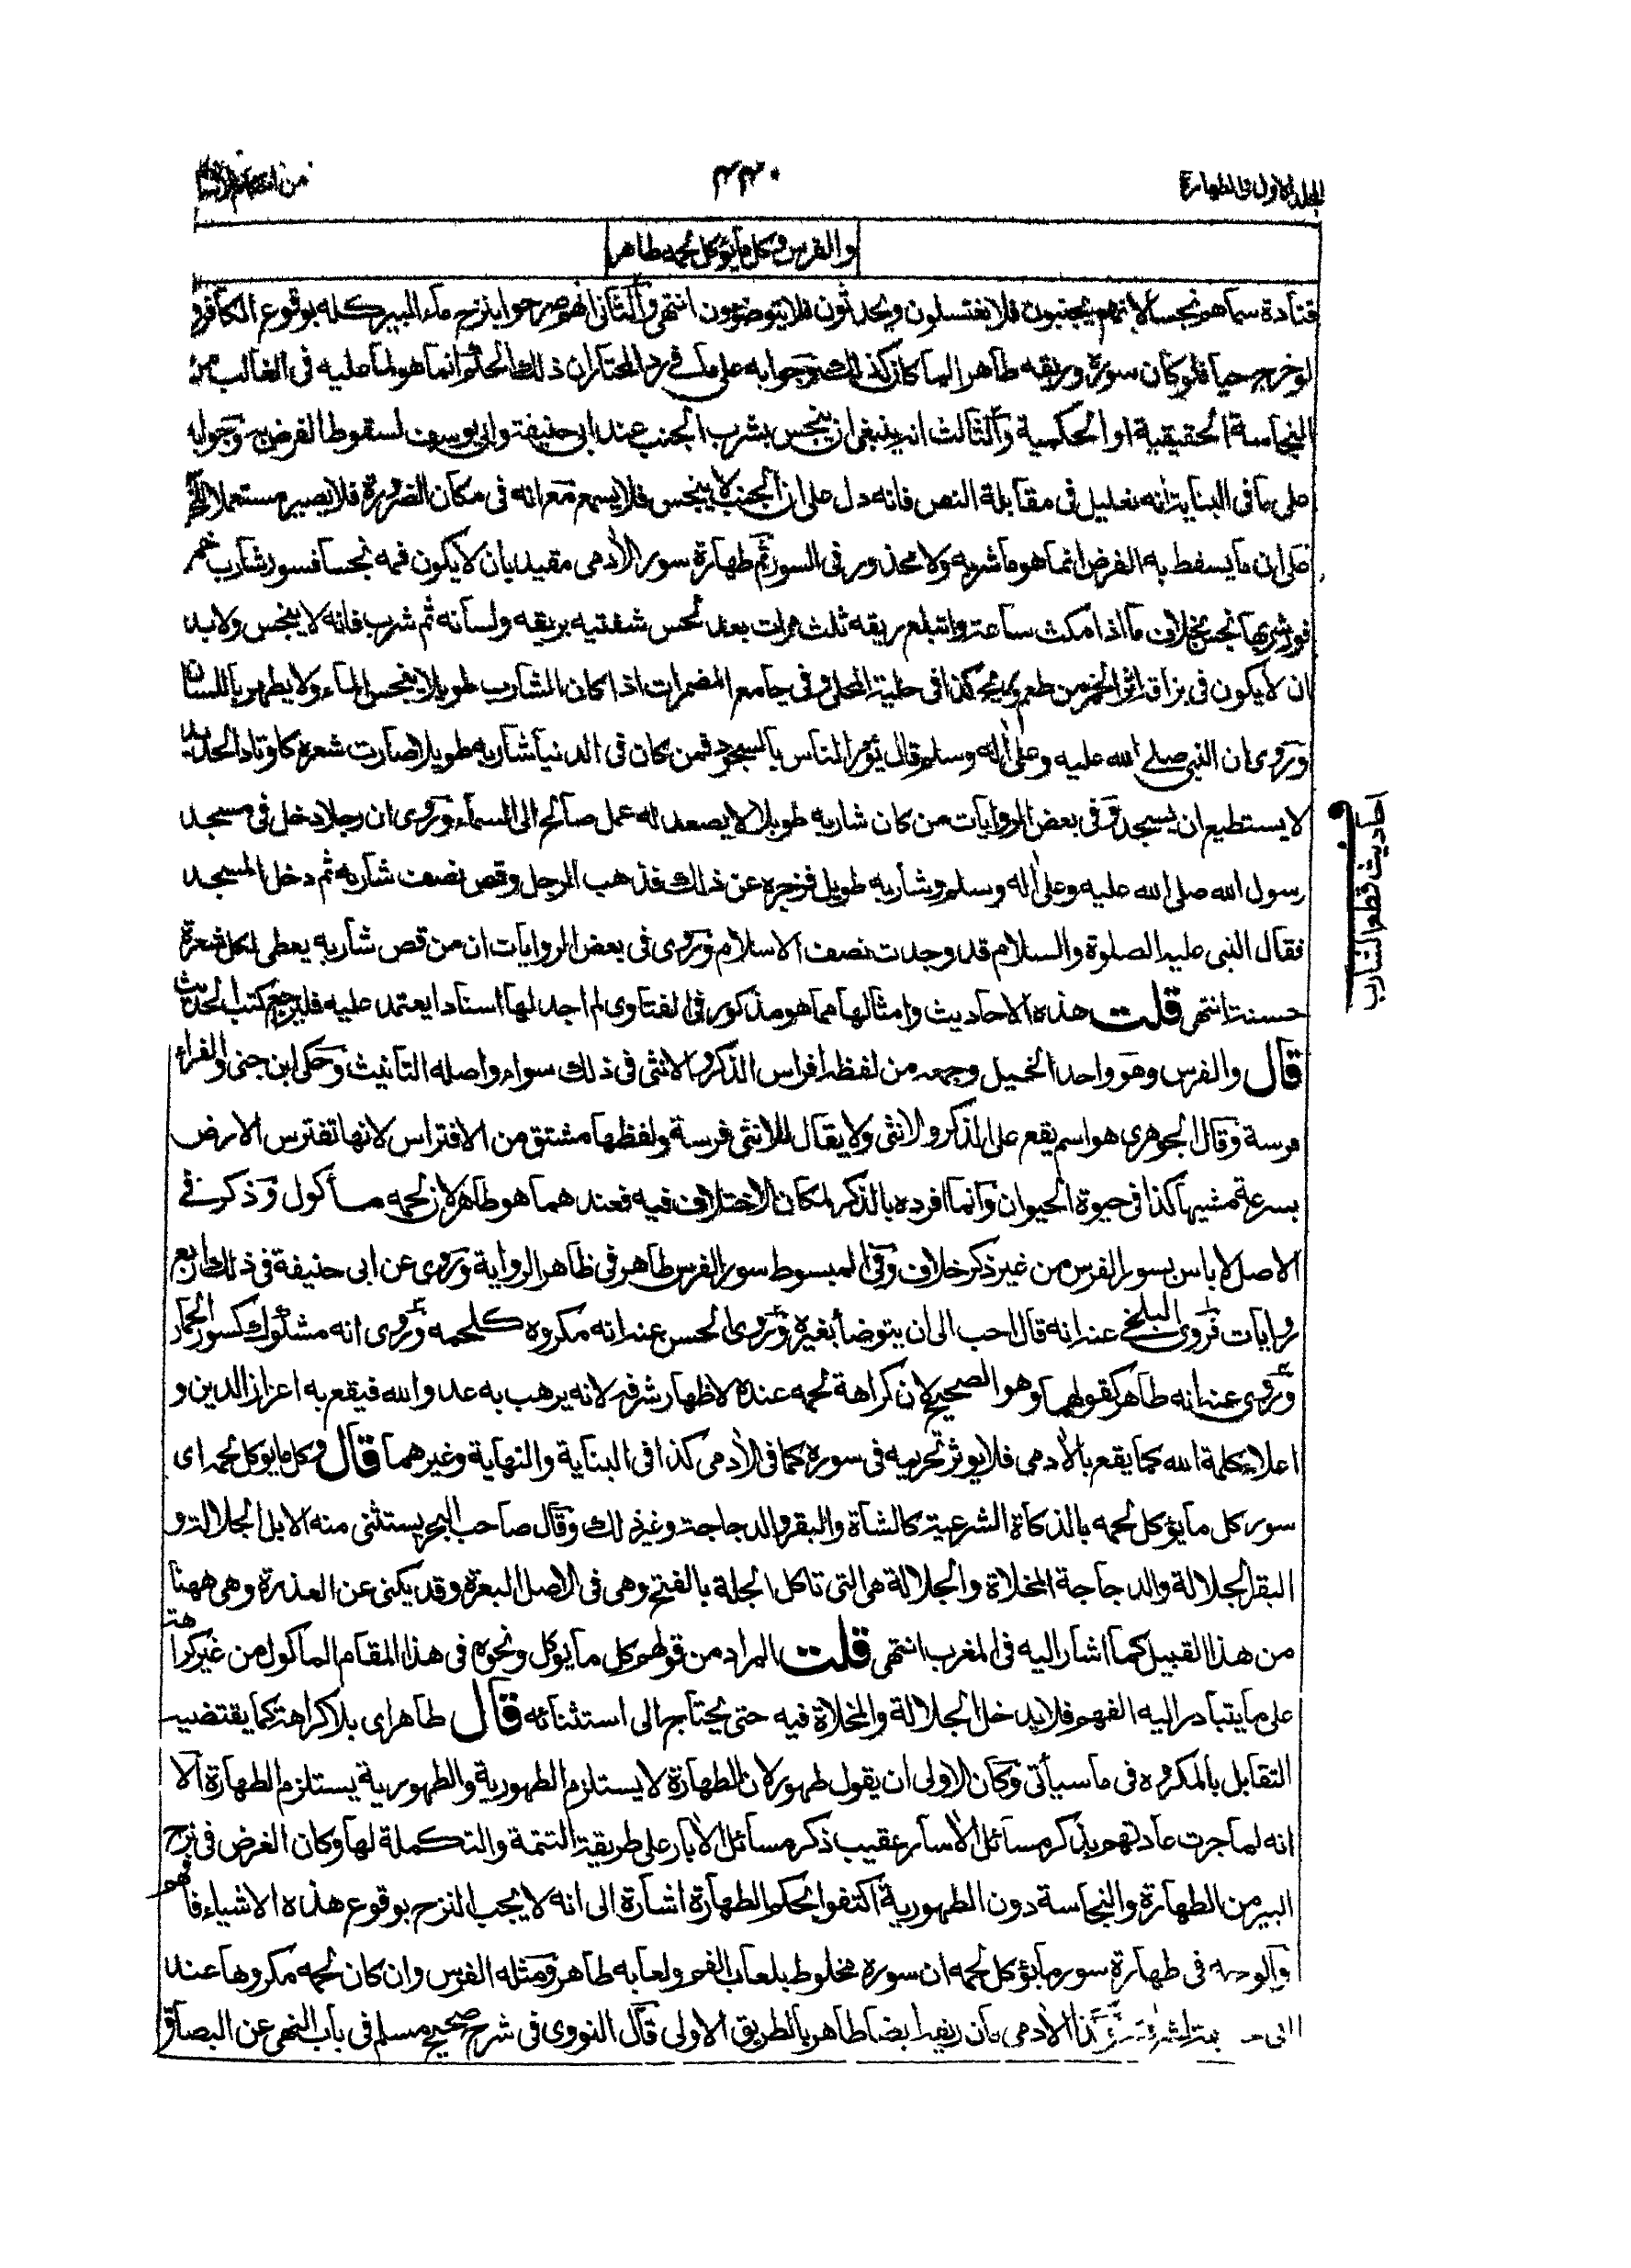 المجلد الاول فى الطهارة
٤٤٠
والفرس وكل ما يؤكل لحمه طاهر
قتادة سماهم نجسا لانهم يجنبون فلا يغتسلون ويحدثون فلا يتوضؤون انتهى والثانى انهم صرحوا بنزح ماء البير كله بوقوع الكافر و
لو خرج حيا فلو كان سوره وريقه طاهرا لما كان كذلك وجوابه على ما فى رد المحتار ان ذلك الحكم انما هو لما عليه فى الغالب من
النجاسة الحقيقية او الحكمية والثالث انه ينبغى ان ينجس بشرب الجنب عند ابى حنيفة وابى يوسف لسقوط الفرض به وجوابه
على ما فى البناية انه تعليل فى مقابلة النص فانه دل على ان الجنب لا ينجس فلا يسمع مع انه فى مكان الضرورة فلا يصير مستعملا
على ان ما يسقط به الفرض انما هو ما شربه ولا محذور فى السور ثم طهارة سور الآدمى مقيد بان لا يكون فمه نجسا فسور شارب خمر
فور شربها نجس بخلاف ما اذا مكث ساعة وابتلع ريقه ثلث مرات بعد لحس شفتيه بريقه ولسانه ثم شرب فانه لا ينجس ولا بد
ان لا يكون فى بزاقه اثر الخمر من طعم وريح كذا فى حلية المحلى وفى جامع المضمرات اذا كان الشارب طويلا ينجس الماء ولا يطهر باللسان
وروى ان النبى صلى الله عليه وعلى آله وسلم قال يؤمر الناس بالسجود فمن كان فى الدنيا شاربه طويلا صارت شعره كاوتاد الحديد
لا يستطيع ان يسجد وفى بعض الروايات من كان شاربه طويلا لا يصعد له عمل صالح الى السماء وروى ان رجلا دخل فى مسجد
رسول الله صلى الله عليه وعلى آله وسلم وشاربه طويل فزجره عن ذلك فذهب الرجل وقص نصف شاربه ثم دخل المسجد
فقال النبى عليه الصلوة والسلام قد وجدت نصف الاسلام وروى فى بعض الروايات ان من قص شاربه يعطى لكل شعرة
حسنة انتهى قلت هذه الاحاديث وامثالها مما هو مذكور فى الفتاوى لم اجد لها اسنادا يعتمد عليه فليرجع كتب الحديث
قال والفرس وهو واحد الخيل وجمعه من لفظه افراس الذكر والانثى فى ذلك سواء واصله التأنيث وحكى ابن جنى والفراء
فرسة وقال الجوهرى هو اسم يقع على الذكر والانثى ولا يقال للانثى فرسة ولفظها مشتق من الافتراس لانها تفترس الارض
بسرعة مشيها كذا فى حيوة الحيوان وانما افرده بالذكر لمكان الاختلاف فيه فعندهما هو طاهر لان لحمه مأكول وذكر فى
الاصل لا باس بسور الفرس من غير ذكر خلاف وفى المبسوط سور الفرس طاهر فى ظاهر الرواية وروى عن ابى حنيفة فى ذلك اربع
روايات فروى البلخى عنه انه قال احب الى ان يتوضأ بغيره وروى الحسن عنه انه مكروه كلحمه وروى انه مشكوك كسور الحمار
وروى عنه انه طاهر كقولهما وهو الصحيح لان كراهة لحمه عنده لاظهار شرفه لانه يرهب به عدو الله فيقع به اعزاز الدين و
اعلاء كلمة الله كما يقع بالآدمى فلا يوثر تحريمه فى سوره كما فى الآدمى كذا فى البناية والنهاية وغيرهما قال وكل ما يوكل لحمه اى
سور كل ما يؤكل لحمه بالذكاة الشرعية كالشاة والبقر والدجاجة وغير ذلك وقال صاحب البحر يستثنى منه الابل الجلالة و
البقر الجلالة والدجاجة المخلاة والجلالة هى التى تاكل الجلة بالفتح وهى فى الاصل البعرة وقد يكنى عن العذرة وهى ههنا
من هذا القبيل كما اشار اليه فى المغرب انتهى قلت المراد من قولهم كل ما يوكل ونحوه فى هذا المقام الماكول من غير كراهة
على ما يتبادر اليه الفهم فلا يدخل الجلالة والمخلاة فيه حتى يحتاج الى استثنائه قال طاهر اى بلا كراهة كما يقتضيه
التقابل بالمكروه فى ما سيأتى وكان الاولى ان يقول طهور لان الطهارة لا يستلزم الطهورية والطهورية يستلزم الطهارة الا
انه لما جرت عادتهم بذكر مسائل الآسار عقيب ذكر مسائل الآبار على طريقة التتمة والتكملة لها وكان الغرض فى نزح
البير من الطهارة والنجاسة دون الطهورية اكتفوا بحكم الطهارة اشارة الى انه لا يجب النزح بوقوع هذه الاشياء فافهم
والوجه فى طهارة سور ما يؤكل لحمه ان سوره مخلوط بلعاب الفم ولعابه طاهر ومثله الفرس وان كان لحمه مكروها عند
الآدمى بأن ريقه ايضا طاهر بالطريق الاولى قال النووى فى شرح صحيح مسلم فى باب النهى عن البصاق
احاديث قطع الشارب